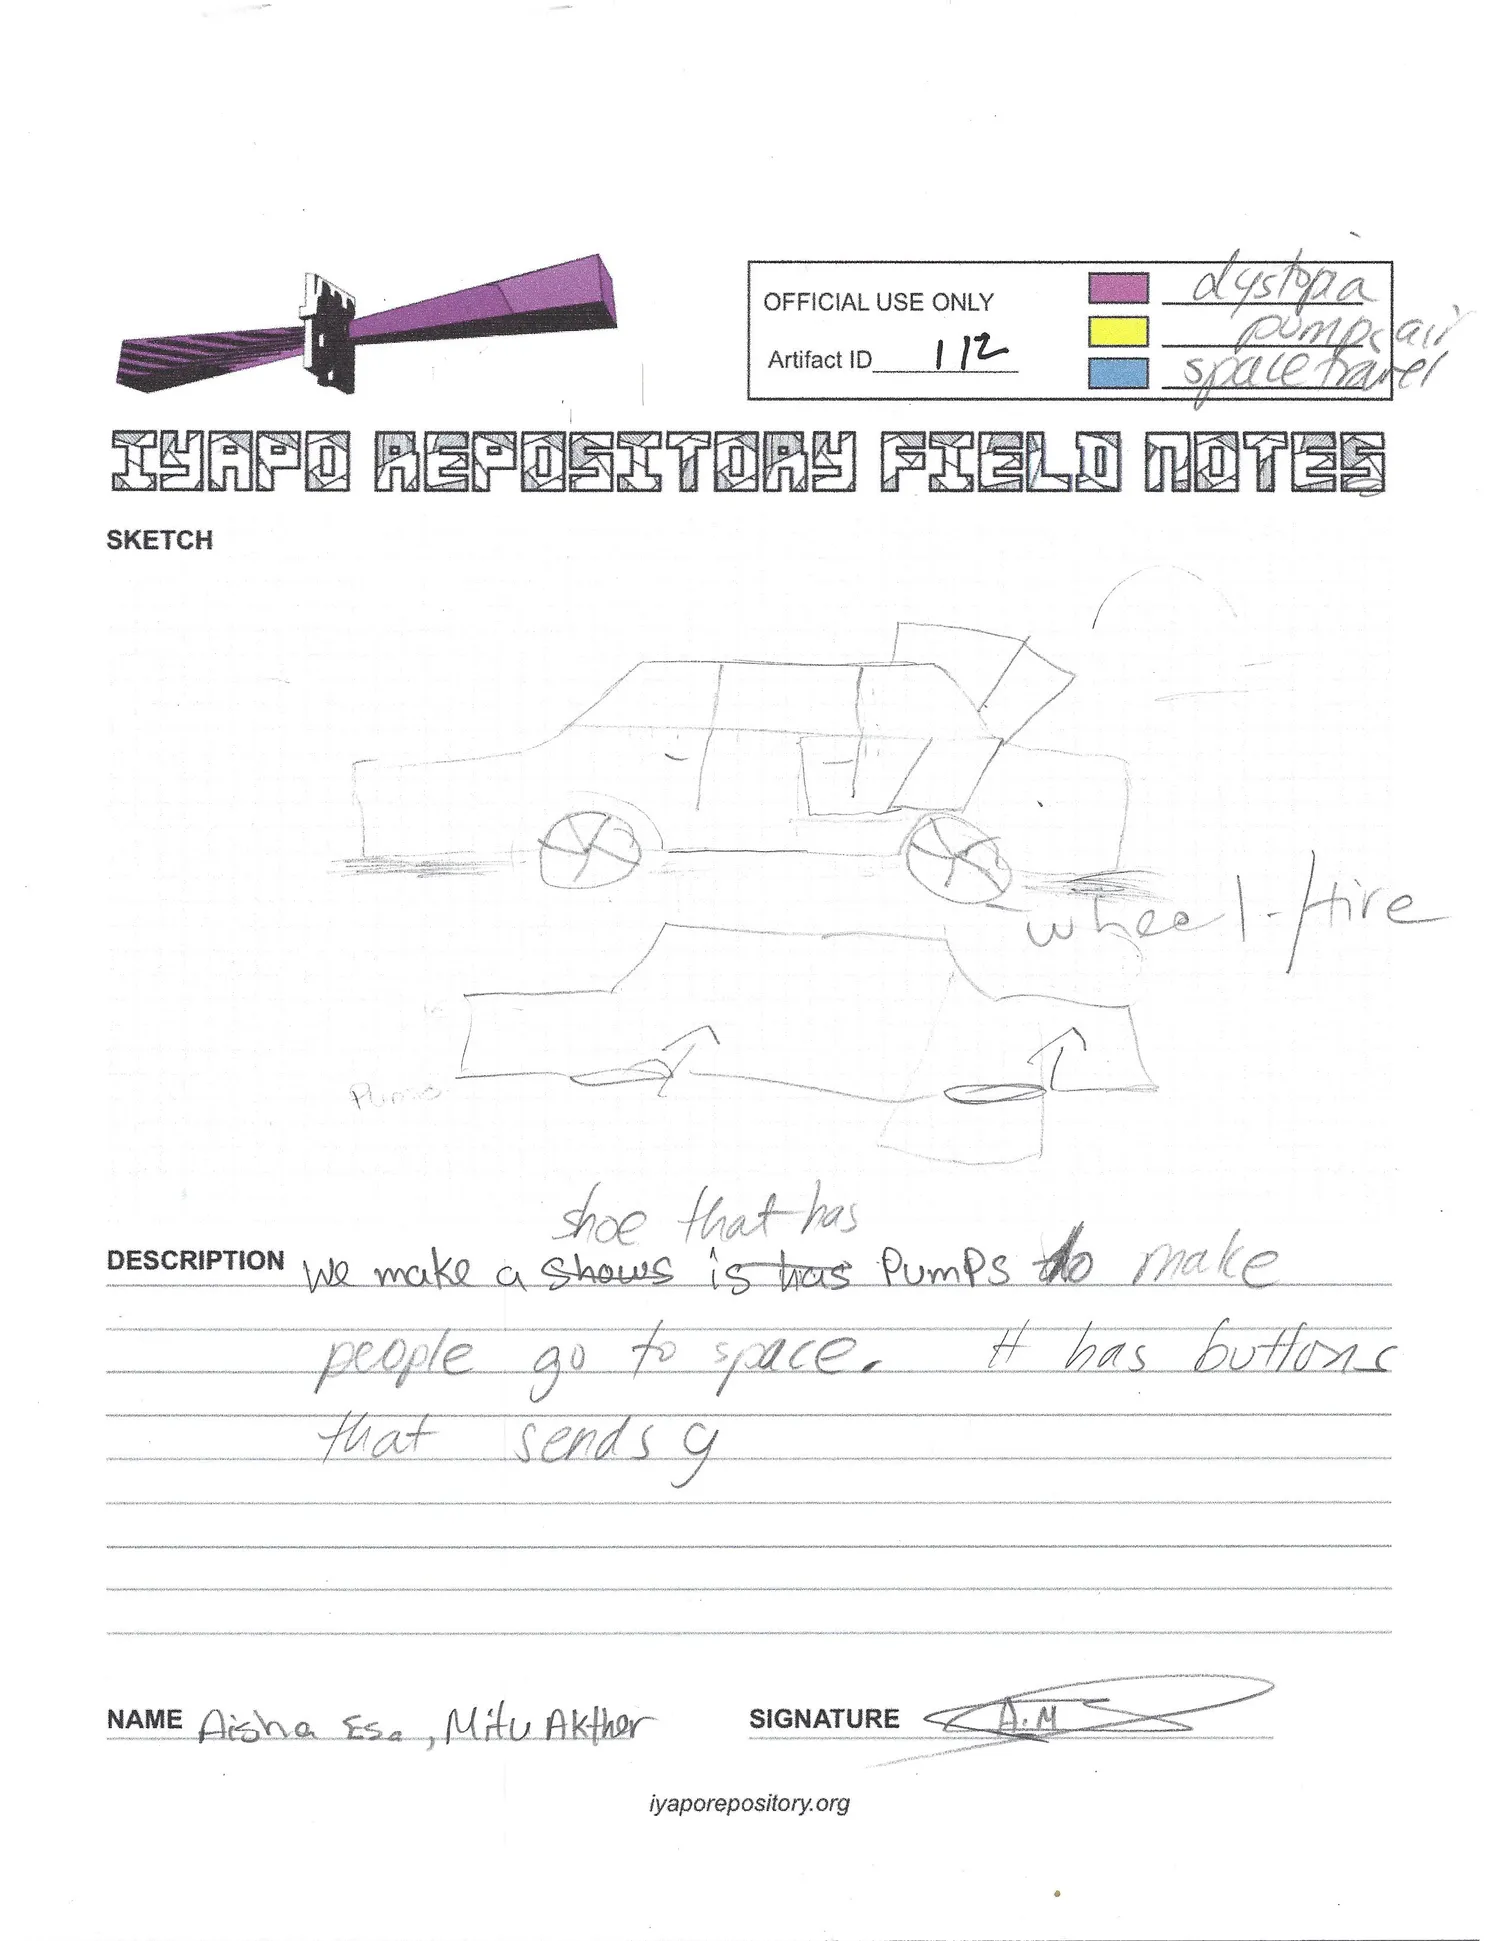 OFFICIAL USE ONLY
Artifact ID 112
dystopia
pumps air
space travel
IYAPO REPOSITORY FIELD NOTES
SKETCH
wheel-tire
Pump
shoe that has
DESCRIPTION We make a shows is has Pumps to make
people go to space. It has buttons
that sends g
NAME Aisha Esa, Mitu Akther
SIGNATURE A.M
iyaporepository.org